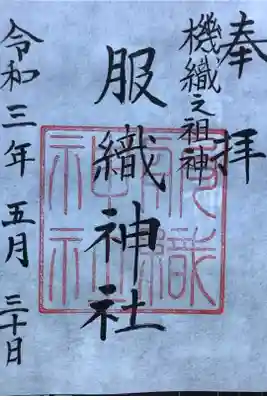 奉拝
機織之祖神
服織神社
令和三年五月三十日